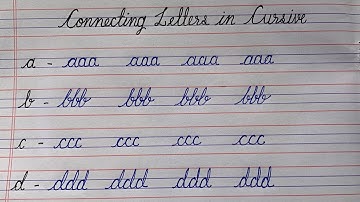 Connecting Letters in Cursive
a - aaa aaa aaa aaa
b - bbb bbb bbb bbb
c - ccc ccc ccc ccc
d - ddd ddd ddd ddd